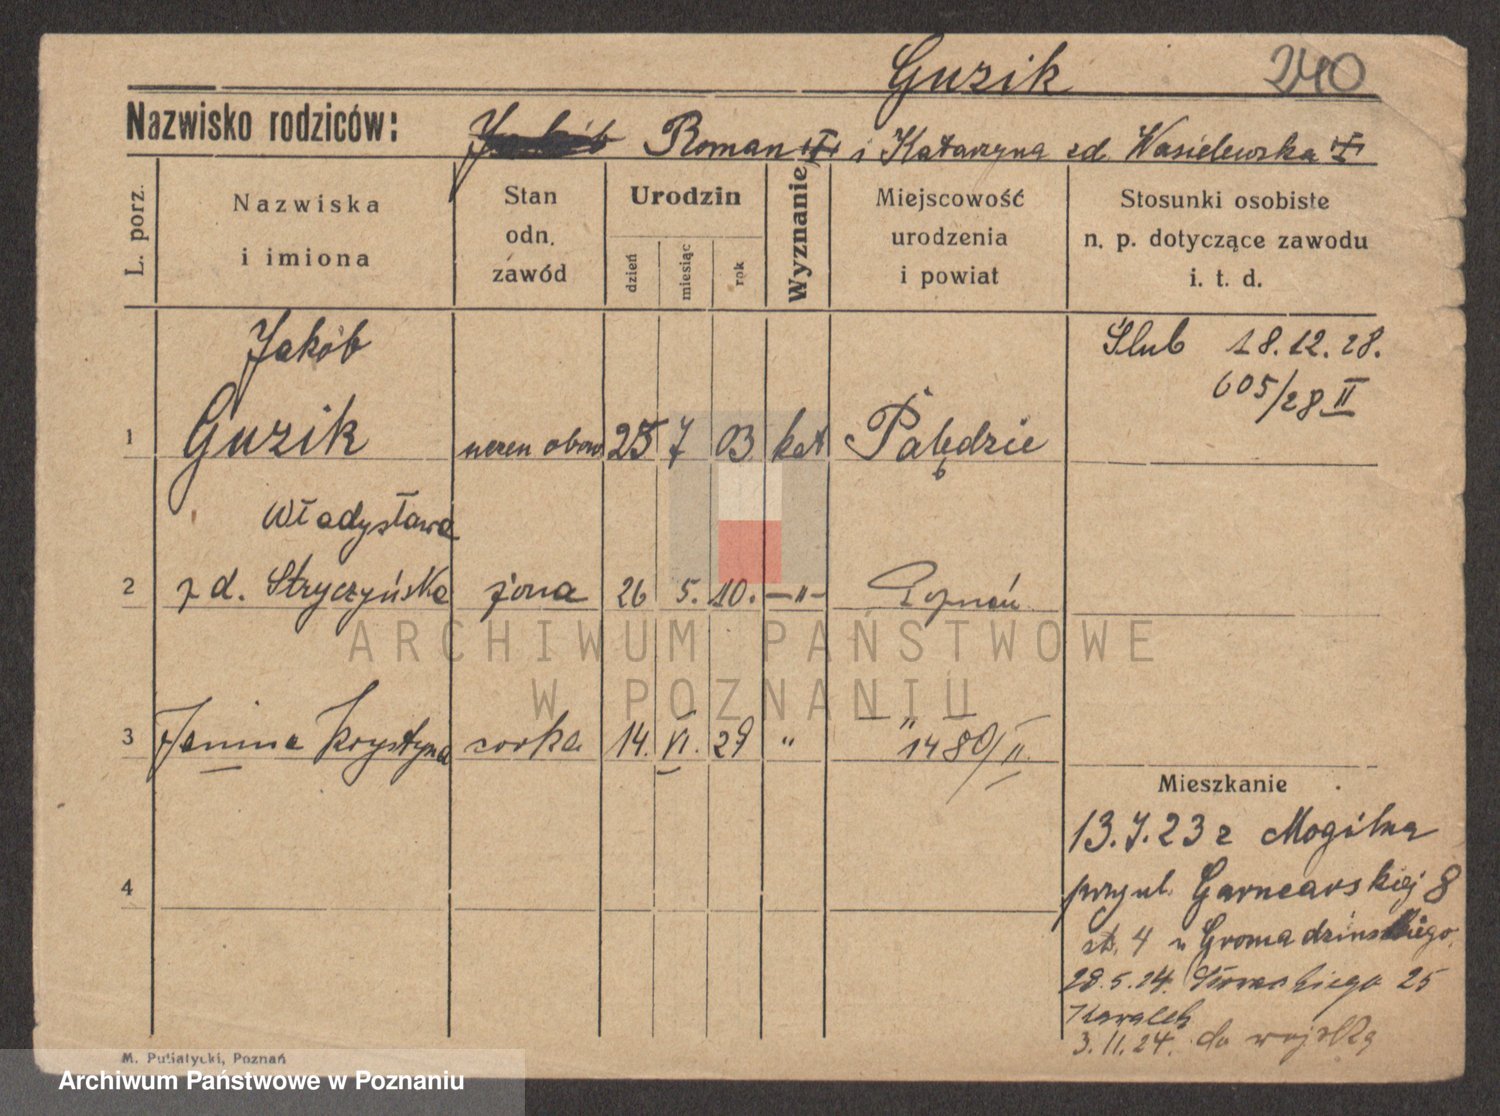 Guzik 240
Nazwisko rodziców: Jakób Roman i Katarzyna zd. Wasielewska
L. porz.
Nazwiska
i imiona
Stan
odn.
zawód
Urodzin
dzień
miesiąc
rok
Wyznanie
Miejscowość
urodzenia
i powiat
Stosunki osobiste
n. p. dotyczące zawodu
i. t. d.
Jakób
Ślub 18.12.28.
605/28 II
1 Guzik uczen 25 7 03 kat Pałędzie
Władysława
2 zd. Stryczyńska żona 26 5. 10. —"— Poznań
ARCHIWUM PAŃSTWOWE
W POZNANIU
3 Janina Krystyna corka 14. VI. 29 " — " —
1480/II.
Mieszkanie
13.7.23 z Mogilna
przy ul. Garncarskiej 8
4
st. 4 u Gromadzińskiego
28.5.24. 25
3.11.24. do wojska
M. Putiatycki, Poznań
Archiwum Państwowe w Poznaniu